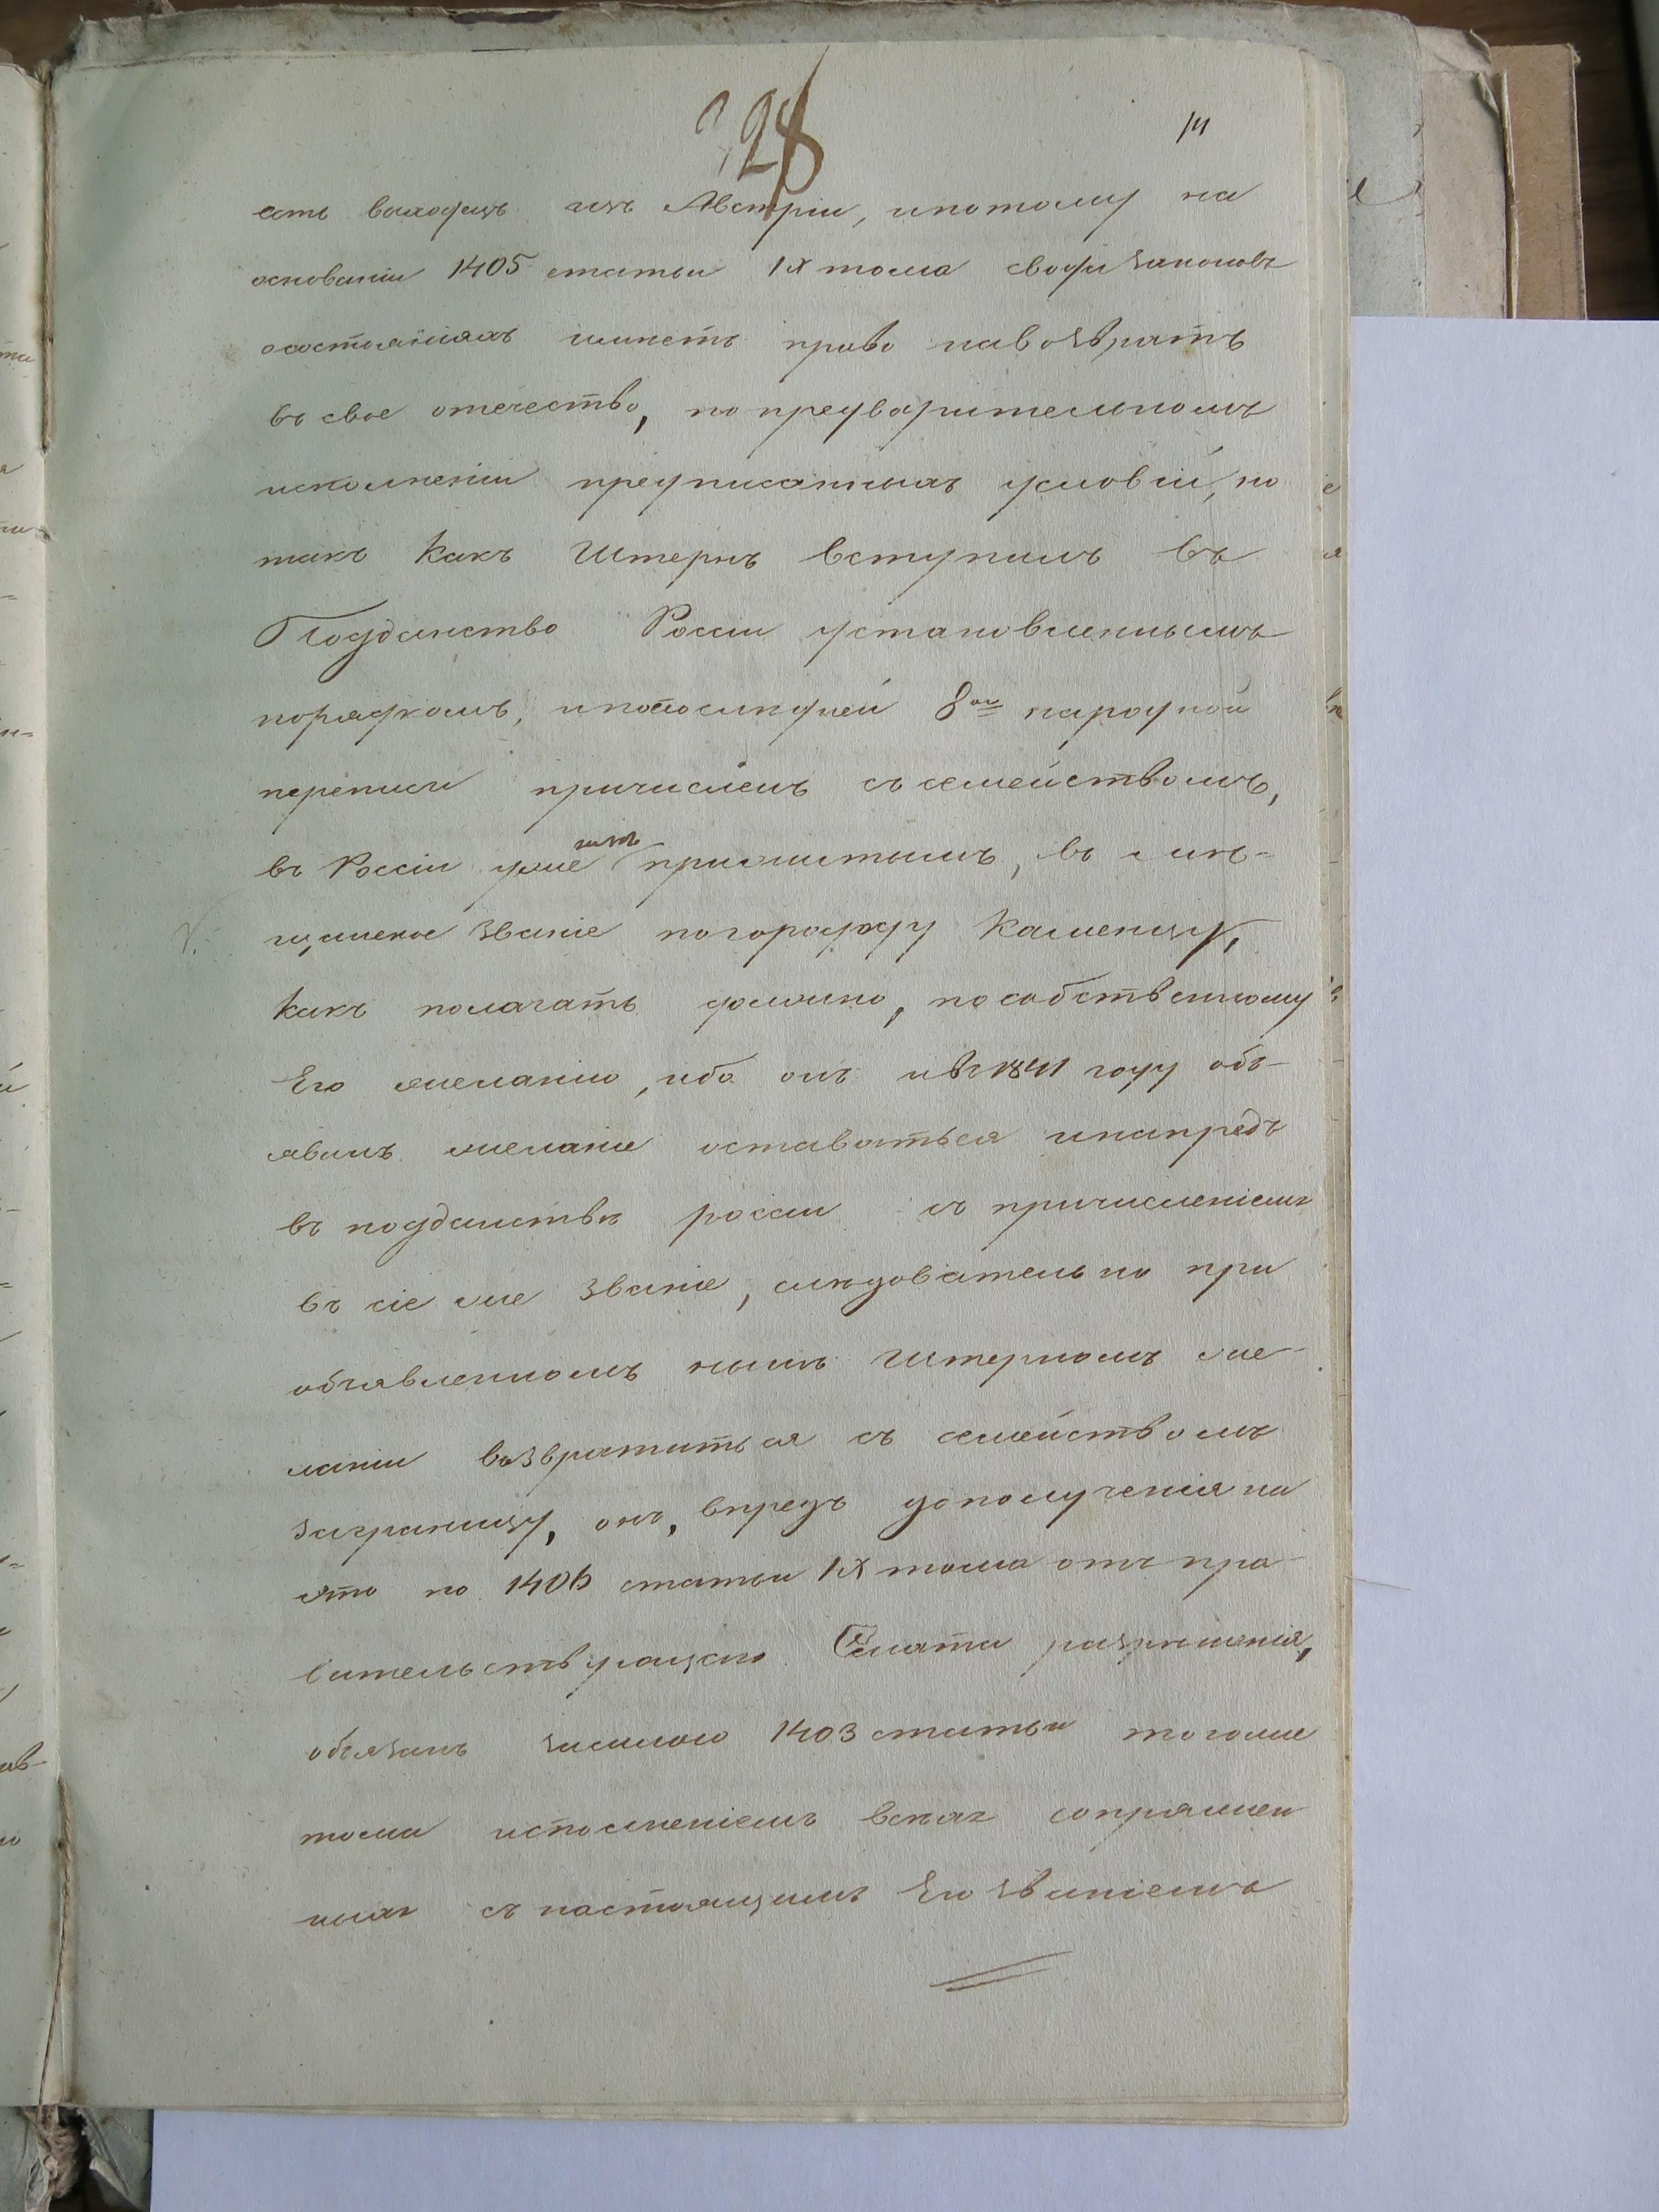 328
14
есть выходецъ изъ Австріи, ипотому на
основаніи 1405 статьи IX тома свода законовъ
осостояніяхъ имѣетъ право навозвратъ
въ свое отечество, по предварительномъ
исполненіи предписанныхъ условій, но
такъ какъ Штернъ вступилъ въ
Подданство Россіи установленнымъ
порядкомъ, ипопослѣдней 8ой народной
переписи причисленъ съ семействомъ,
въ Россіи уже имъ прижитымъ, въ мѣ-
щанское званіе погороду Каменцу,
какъ полагать должно, пособственному
Его желанію, ибо онъ ивъ 1841 году объ-
явилъ желаніе оставаться инапредъ
въ подданствѣ россіи съ причисленіемъ
въ сіе же званіе, слѣдовательно при
объявленномъ нынѣ Штерномъ же-
ланіи возвратиться съ семействомъ
заграницу, онъ, впредь дополученія на
это по 1406 статьи IX тома отъ пра-
вительствующаго Сената разрѣшенія,
обязанъ засилою 1403 статьи тогоже
тома исполненіемъ всѣхъ сопряжен
ныхъ съ настоящимъ Его званіемъ